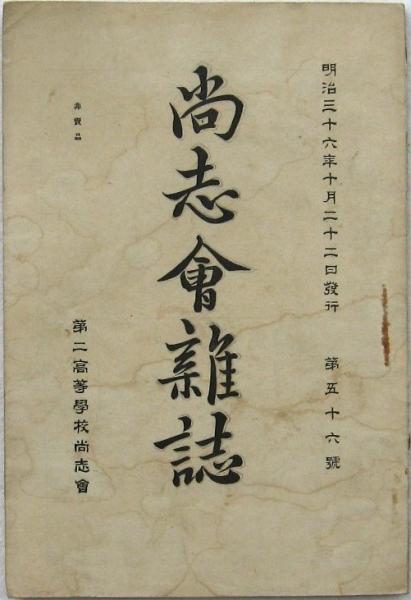 明治三十六年十月二十二日發行　第五十六號
尚志會雜誌
非賣品
第二高等學校尚志會